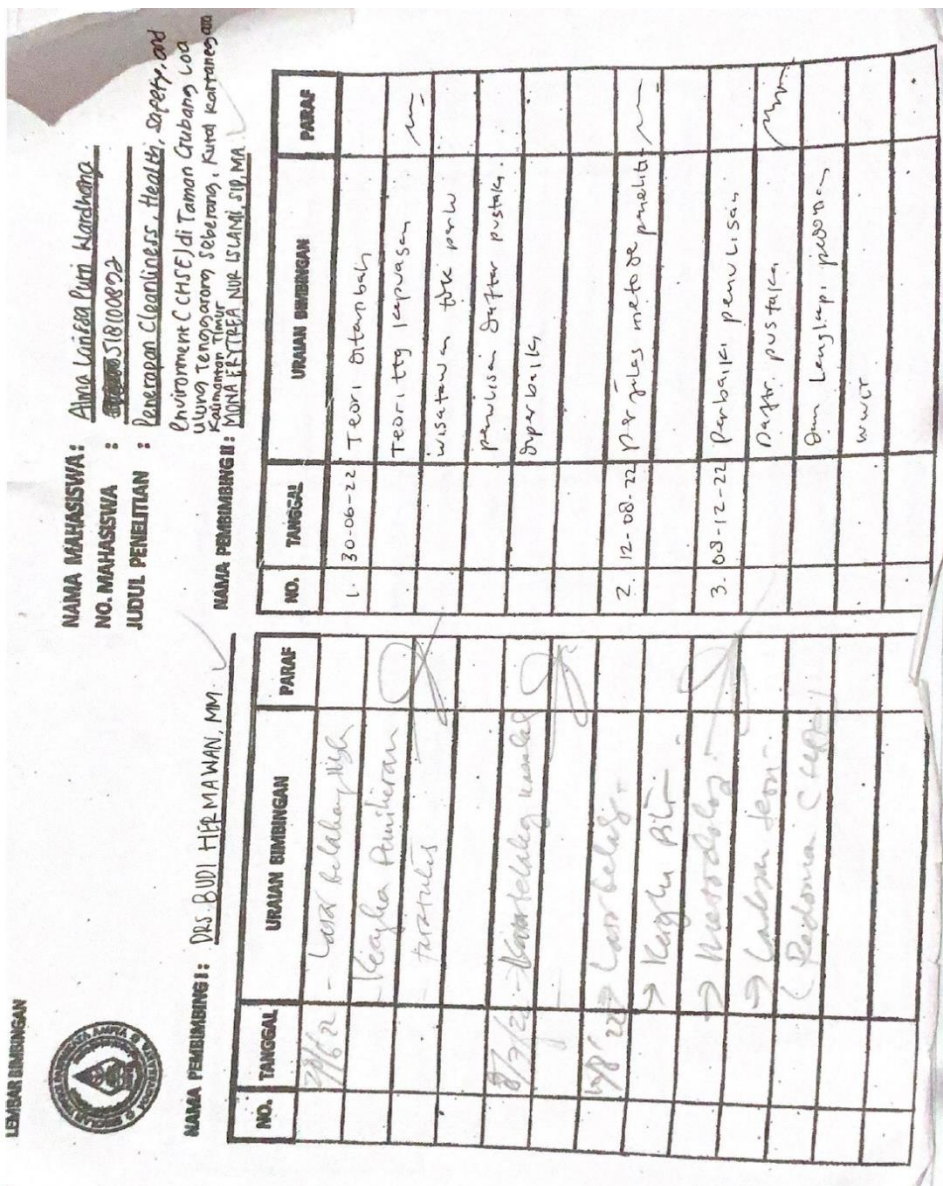 LEMBAR BIMBINGAN
NAMA MAHASISWA :
NO. MAHASISWA : 518100892
JUDUL PENELITIAN : Penerapan Cleanliness, Health, Safety, and
Environment (CHSE) di Taman Gubang Loa
Ulung Tenggarong Seberang, Kutai Kartanegara
Kalimantan Timur
NAMA PEMBIMBING I : DRS. BUDI HERMAWAN, MM
NO. TANGGAL URAIAN BIMBINGAN PARAF
- Latar belakang
- Kerangka Pemikiran
- Latar belakg
→ Metodolog
→ Landasan teori
NAMA PEMBIMBING II : MONA ERYTREA NUR ISLAMI, SIP, MA
NO. TANGGAL URAIAN BIMBINGAN PARAF
1. 30-06-22 Teori Ditambah
Teori ttg kepuasan
wisatawan tdk perlu
penulisan daftar pustaka
diperbaiki
2. 12-08-22 Perjelas metode penelitian
3. 08-12-22 Perbaiki penulisan
Daftar pustaka
Dan lengkapi pedoman
wwcr